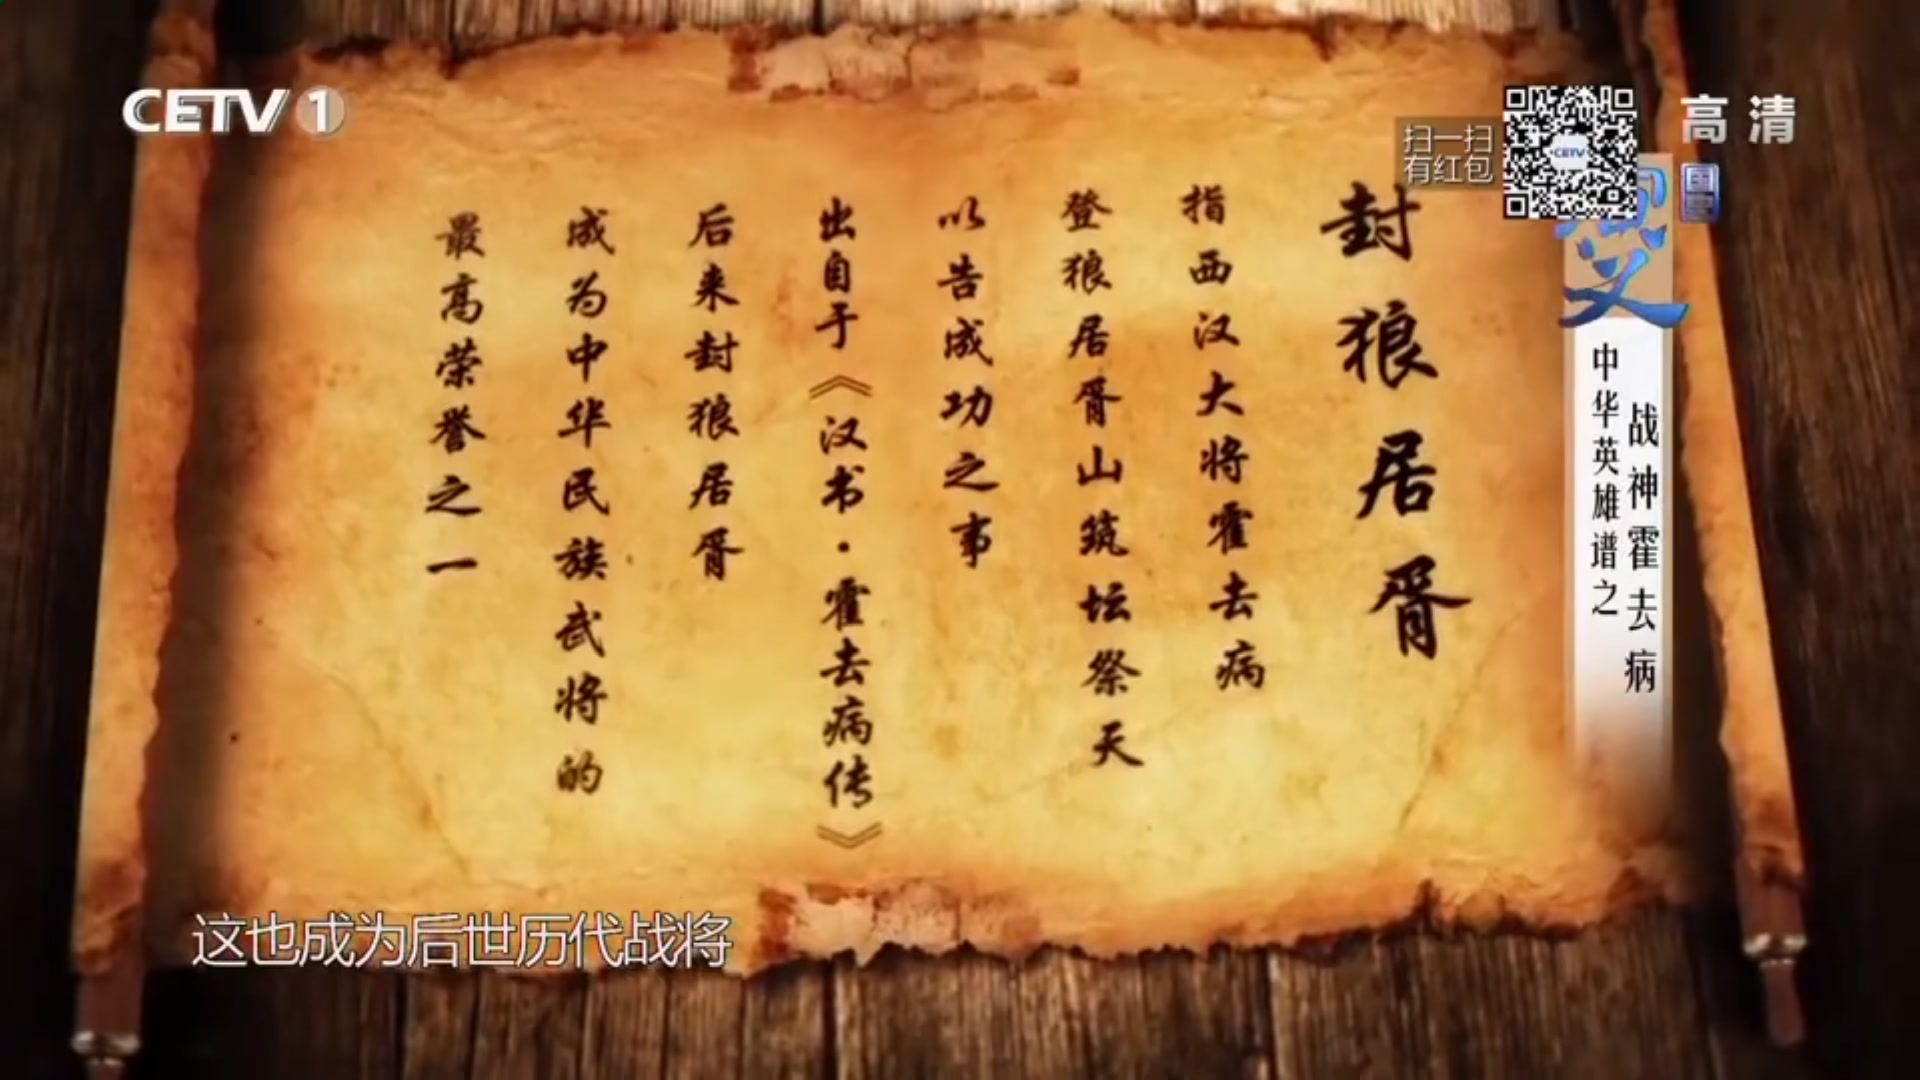 CETV 1
扫一扫
有红包
CETV
高清
国
义
中华英雄谱之
战神霍去病
封狼居胥
指西汉大将霍去病
登狼居胥山筑坛祭天
以告成功之事
出自于《汉书·霍去病传》
后来封狼居胥
成为中华民族武将的
最高荣誉之一
这也成为后世历代战将